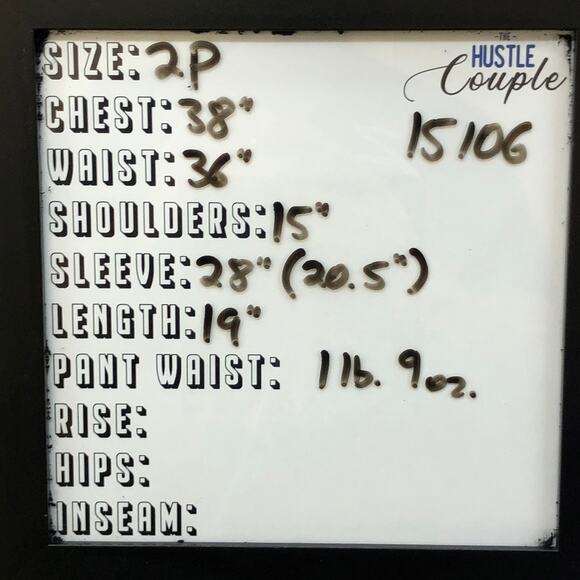 SIZE: 2P
-THE-
HUSTLE
Couple
CHEST: 38"
15106
WAIST: 36"
SHOULDERS: 15"
SLEEVE: 28" (20.5")
LENGTH: 19"
PANT WAIST: 1 lb. 9 oz.
RISE:
HIPS:
INSEAM: